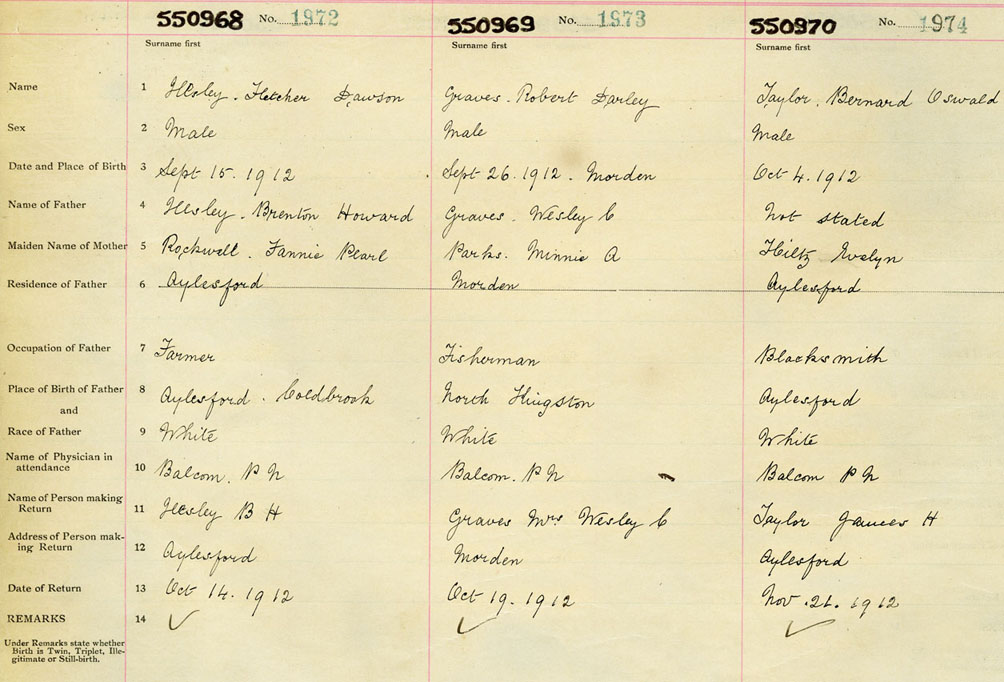 550968 No. 1972 550969 No. 1973 550970 No. 1974
Surname first Surname first Surname first
Name 1 Ilsley. Fletcher Dawson Graves. Robert Darley Taylor. Bernard Oswald
Sex 2 Male Male Male
Date and Place of Birth 3 Sept 15. 1912 Sept 26. 1912. Morden Oct 4. 1912
Name of Father 4 Ilsley. Brenton Howard Graves. Wesley C Not stated
Maiden Name of Mother 5 Rockwell. Fannie Pearl Parks. Minnie A Hiltz Evelyn
Residence of Father 6 Aylesford Morden Aylesford
Occupation of Father 7 Farmer Fisherman Blacksmith
Place of Birth of Father 8 Aylesford. Coldbrook North Kingston Aylesford
and
Race of Father 9 White White White
Name of Physician in
attendance 10 Balcom. P N Balcom. P N Balcom P N
Name of Person making
Return 11 Ilsley B H Graves Mrs Wesley C Taylor James H
Address of Person mak-
ing Return 12 Aylesford Morden Aylesford
Date of Return 13 Oct 14. 1912 Oct 19. 1912 Nov. 21. 1912
REMARKS 14 ✓ ✓ ✓
Under Remarks state whether
Birth is Twin, Triplet, Ille-
gitimate or Still-birth.